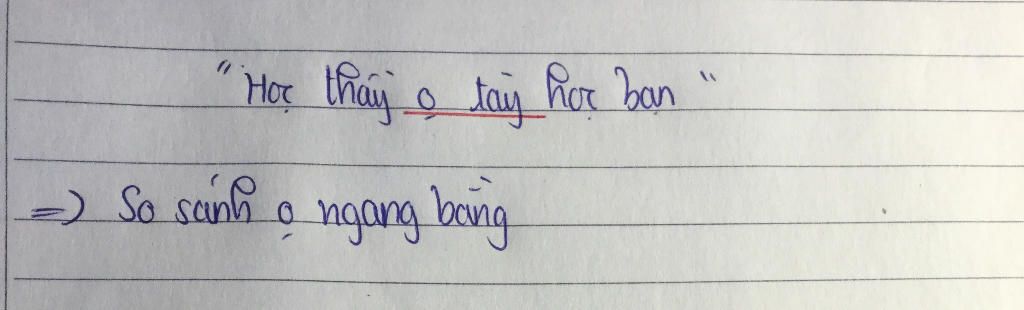 "Học thầy ọ tày học bạn"
=> So sánh ọ ngang bằng